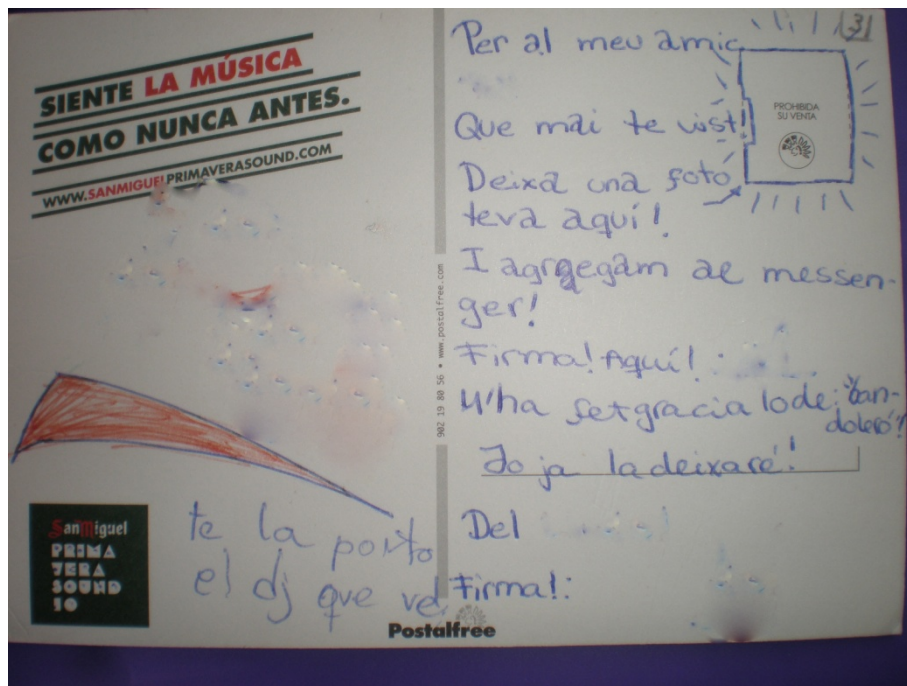 SIENTE LA MÚSICA
COMO NUNCA ANTES.
WWW.SANMIGUELPRIMAVERASOUND.COM
te la porto
el dj que ve
SanMiguel
PRIMA
VERA
SOUND
10
Postalfree
902 19 80 56 • www.postalfree.com
3
Per al meu amic
PROHIBIDA
SU VENTA
Que mai te vist!
Deixa una foto
teva aquí!
I agregam al messen-
ger!
Firma! Aquí! :
M'ha fet gracia lo de: "ban-
dolero"!
Jo ja la deixaré!
Del
Firma!: